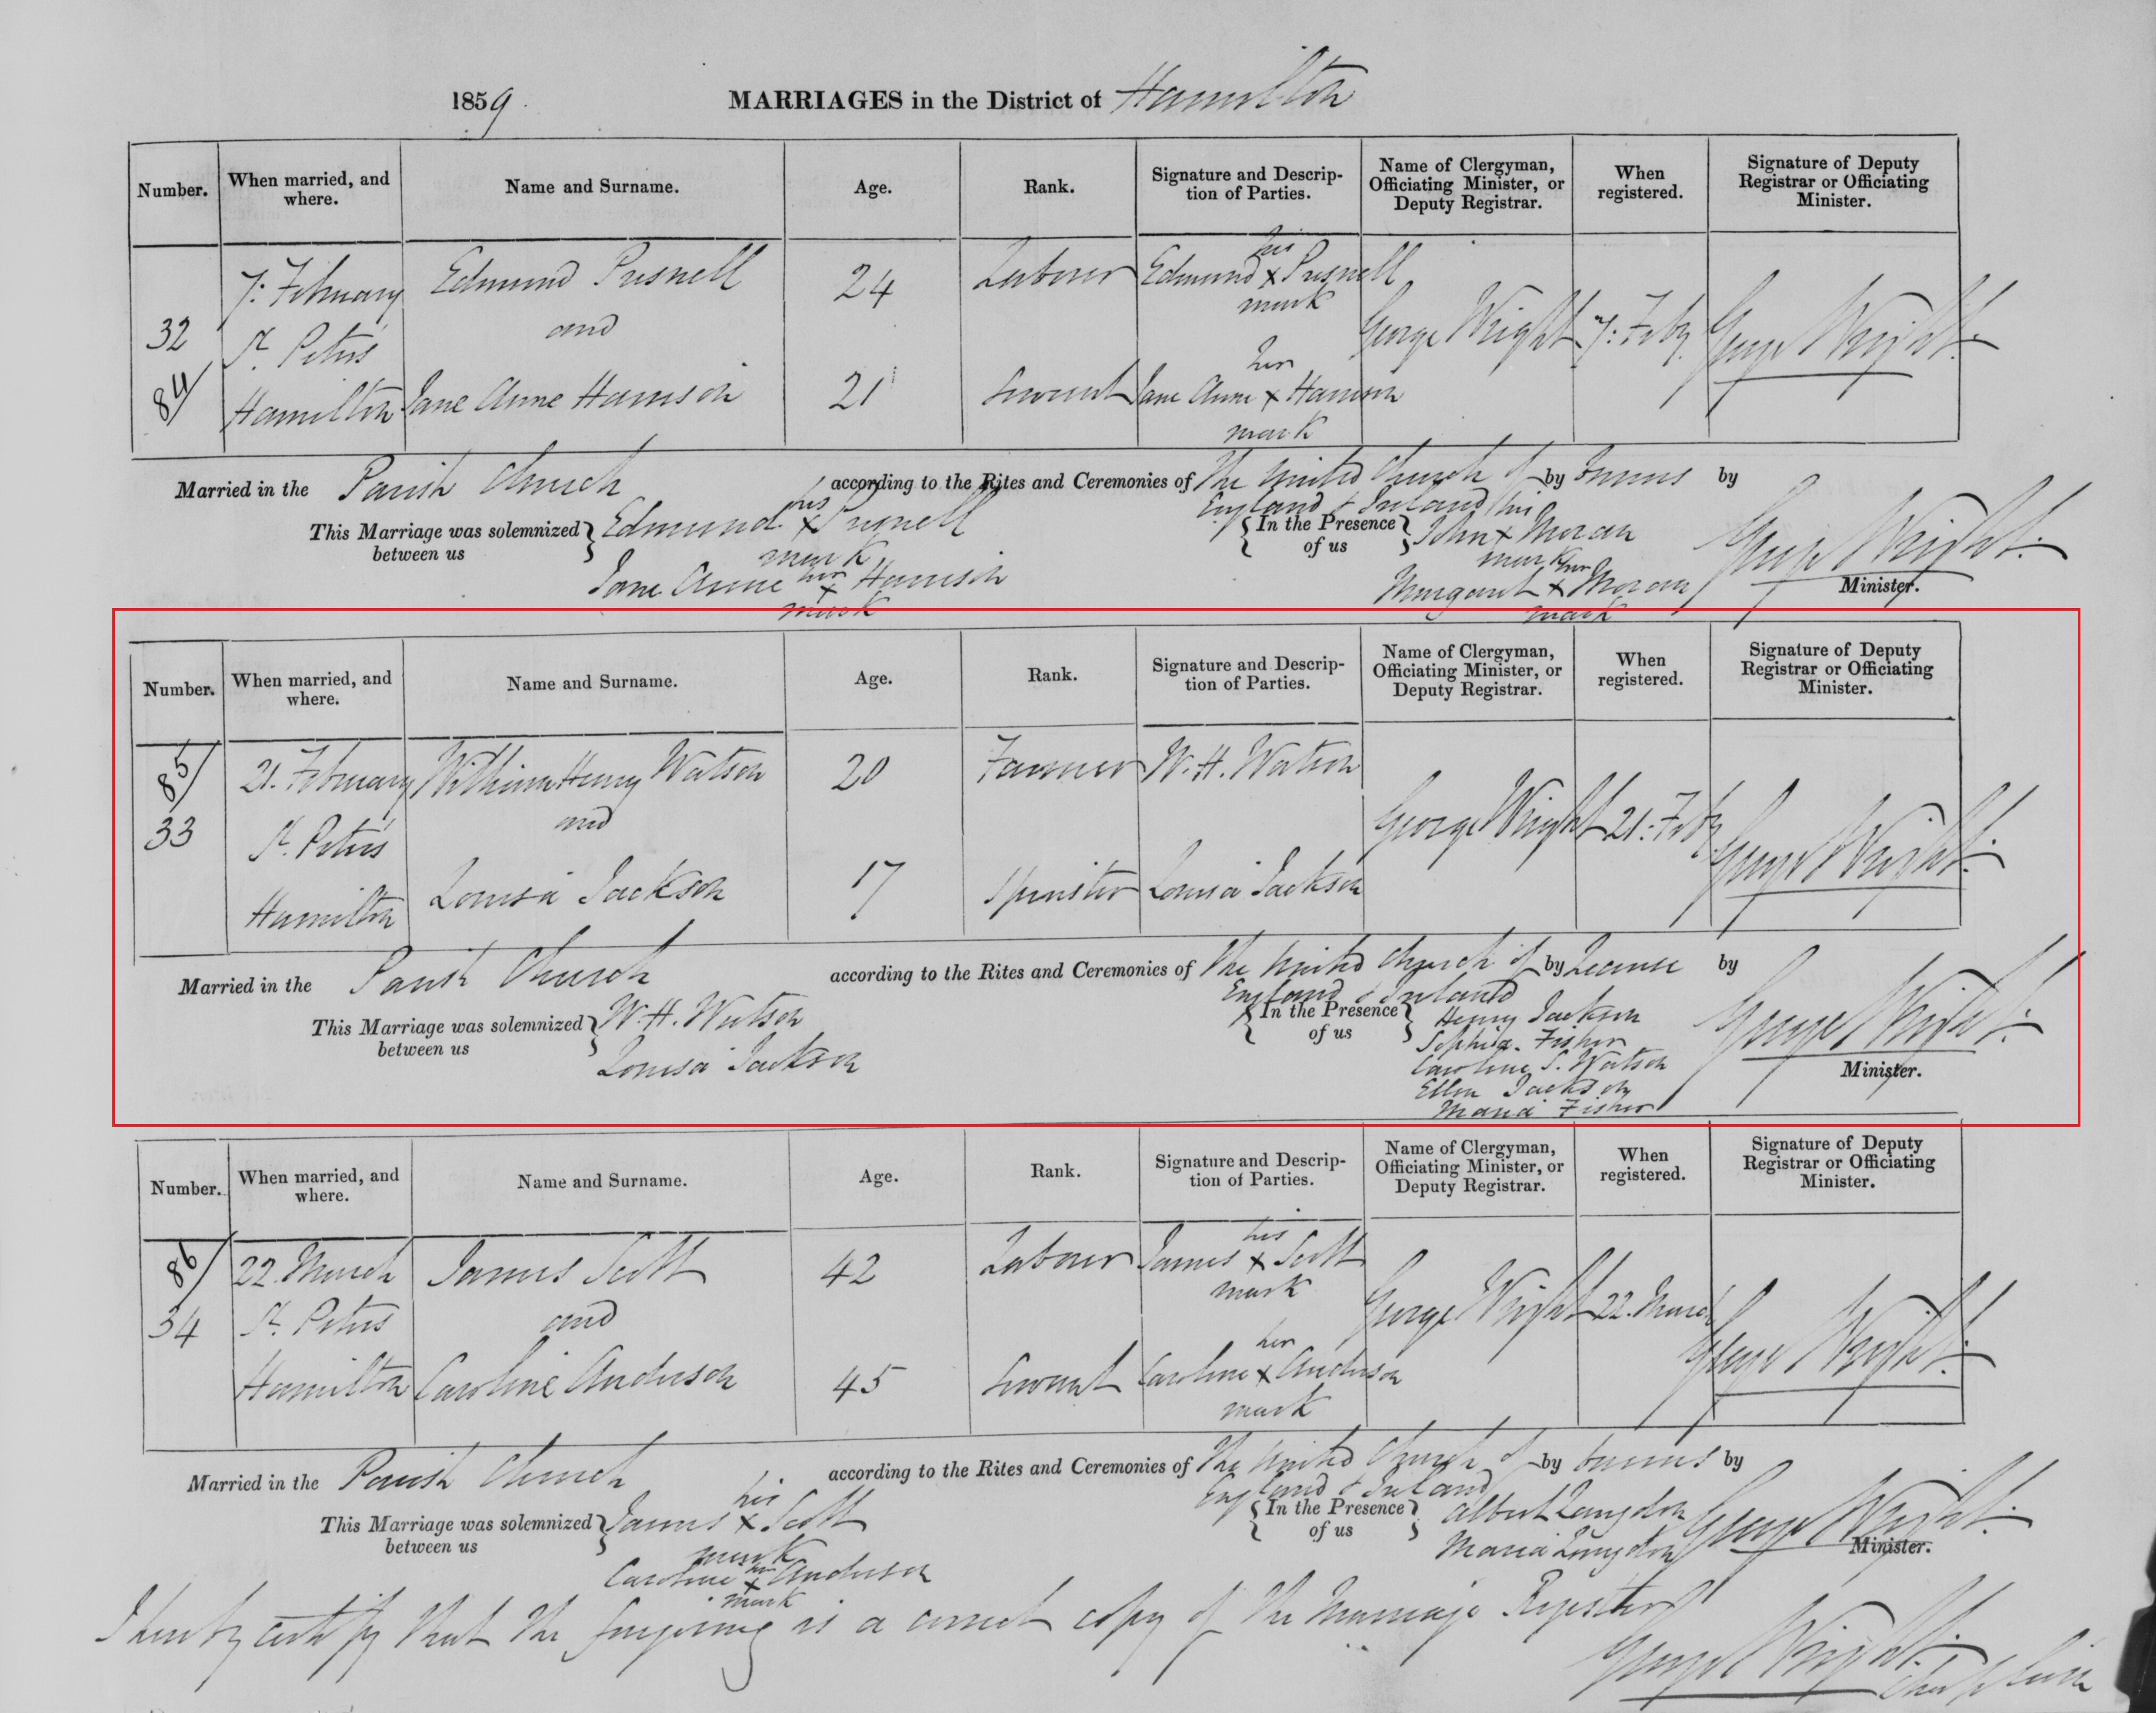 1859. MARRIAGES in the District of Hamilton
Number. When married, and where. Name and Surname. Age. Rank. Signature and Description of Parties. Name of Clergyman, Officiating Minister, or Deputy Registrar. When registered. Signature of Deputy Registrar or Officiating Minister.
7: February Edmund Presnell 24 Labourer Edmund his x mark Presnell
32 St. Peter's and George Wright 7: Feby. George Wright.
84/ Hamilton Jane Anne Harrison 21 Servant Jane Anne her x mark Harrison
Married in the Parish Church according to the Rites and Ceremonies of The United Church of England & Ireland by Banns by
This Marriage was solemnized between us { Edmund his x mark Presnell
Jane Anne her x mark Harrison
In the Presence of us { John his x mark Moran
Margaret her x mark Moran
George Wright.
Minister.
Number. When married, and where. Name and Surname. Age. Rank. Signature and Description of Parties. Name of Clergyman, Officiating Minister, or Deputy Registrar. When registered. Signature of Deputy Registrar or Officiating Minister.
85/ 21. February William Henry Watson 20 Farmer W. H. Watson
33 St. Peter's and George Wright 21: Feby. George Wright.
Hamilton Louisa Jackson 17 Spinster Louisa Jackson
Married in the Parish Church according to the Rites and Ceremonies of The United Church of England & Ireland by License by
This Marriage was solemnized between us { W. H. Watson
Louisa Jackson
In the Presence of us { Henry Jackson
Sophia Fisher
Caroline S. Watson
Ellen Jackson
Maria Fisher
George Wright.
Minister.
Number. When married, and where. Name and Surname. Age. Rank. Signature and Description of Parties. Name of Clergyman, Officiating Minister, or Deputy Registrar. When registered. Signature of Deputy Registrar or Officiating Minister.
86/ 22. March James Scott 42 Labourer James his x mark Scott
34 St. Peter's and George Wright 22. March George Wright.
Hamilton Caroline Anderson 45 Servant Caroline her x mark Anderson
Married in the Parish Church according to the Rites and Ceremonies of The United Church of England & Ireland by Banns by
This Marriage was solemnized between us { James his x mark Scott
Caroline her x mark Anderson
In the Presence of us { Albert Langdon
Maria Langdon
George Wright.
Minister.
I hereby certify that the foregoing is a correct copy of the Marriage Register
George Wright.
Chaplain